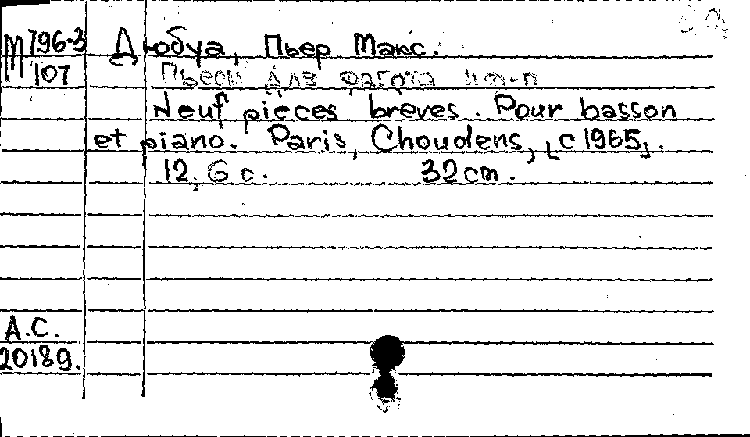 М 796-3 Дюбуа, Пьер Макс.
107 Пьесы для фагота и ф-п
Neuf pièces brèves. Pour basson
et piano. Paris, Choudens, [c 1965].
12, 6 с. 32 cm.
А.С.
20189.